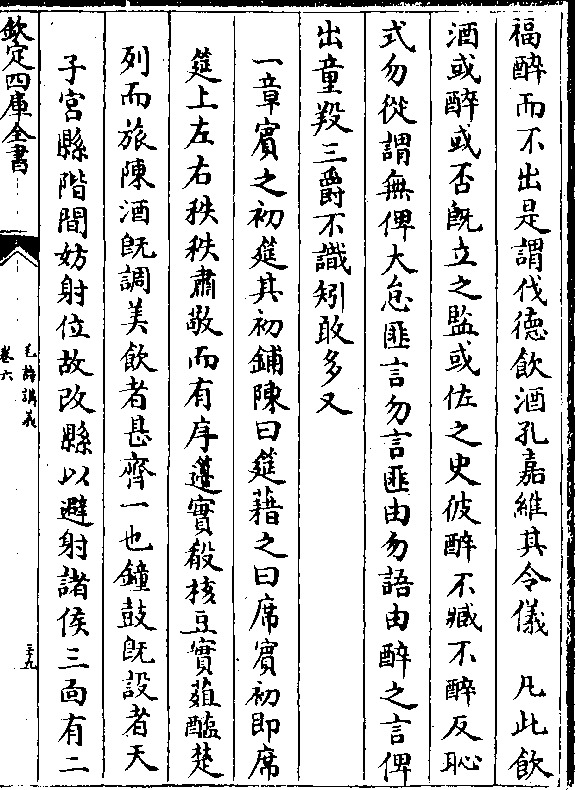 福醉而不出是謂伐德飲酒孔嘉維其令儀　凡此飲
酒或醉或否既立之監或佐之史彼醉不臧不醉反恥
式勿從謂無俾大怠匪言勿言匪由勿語由醉之言俾
出童羖三爵不識矧敢多又
一章賓之初筵其初鋪陳曰筵藉之曰席賓初即席
筵上左右秩秩肅敬而有序籩實殽核豆實菹醢楚
列而旅陳酒既調美飲者甚齊一也鐘鼓既設者天
子宮縣階間妨射位故改縣以避射諸侯三面有二
欽定四庫全書
毛詩講義
卷六
三十九